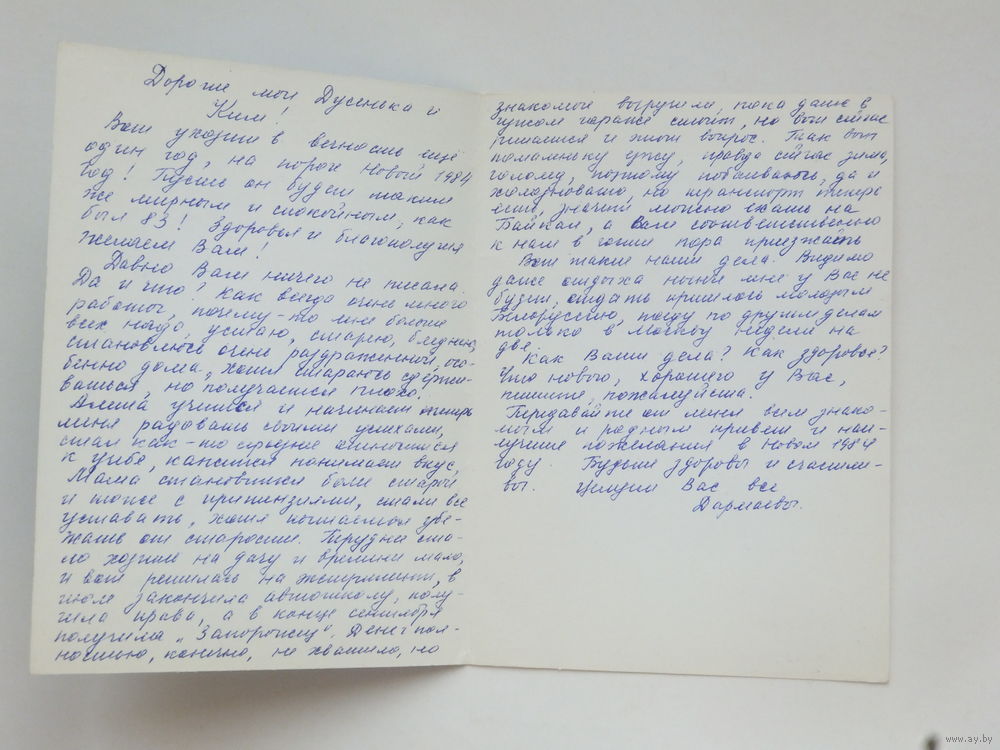 Дорогие мои Дусенька и
Ким!
Вот уходит в вечность ещё
один год, на пороге Новый 1984
год! Пусть он будет таким
же мирным и спокойным, как
был 83! Здоровья и благополучия
желаем Вам!
Давно Вам ничего не писала.
Да и что? Как всегда очень много
работы, почему-то мне больше
всех надо, устаю, старею, бледнею,
становлюсь очень раздраженной, осо-
бенно дома, хотя стараюсь сдержи-
ваться, но получается плохо.
учится и начинает теперь
меня радовать своими успехами,
стал как-то относится
к учёбе, кажется понимает вкус,
Мама становится более старой
и тоже с притензиями, стали все
уставать, хотя пытаемся убе-
жать от старости. Трудно ста-
ло ходить на дачу и времени мало,
и вот решилась на эксперимент, в
июле закончила автошколу, полу-
чила права, а в конце сентября
получила „Запорожец". Денег пол-
ностью, конечно, не хватило, но
знакомые выручили, пока даже в
чужом гараже стоит, но вот сейчас
решается и этот вопрос. Так вот
помаленьку езжу, правда сейчас зима,
гололед, поэтому побаиваюсь, да и
холодновато, но транспорт теперь
есть, значит можно ехать на
Байкал, а Вам соответственно
к нам в гости пора приезжать
Вот такие наши дела. Видимо
даже отдыха ныне мне у Вас не
будет, отдать пришлось молодым
Белоруссию, поеду по другим делам
только в Москву недели на
две.
Как Ваши дела? Как здоровье?
Что нового, хорошего у Вас,
пишите, пожалуйста.
Передавайте от меня всем знако-
мым и родным привет и наи-
лучшие пожелания в Новом 1984
году. Будьте здоровы и счастли-
вы. Целуем Вас все
Дармаевы.
www.ay.by